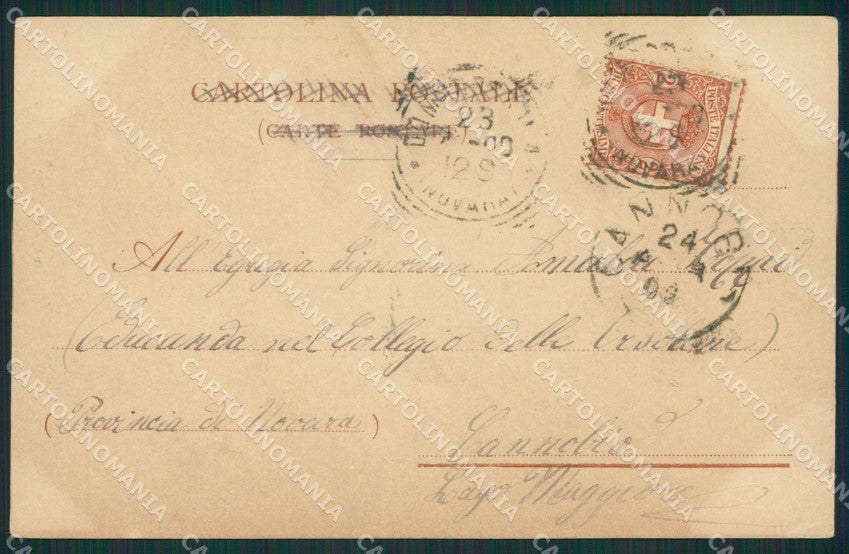 CARTOLINA POSTALE
(CARTE POSTALE)
23
12 S
(NOVARA)
POSTE ITALIANE
(NOVARA)
CANNOB
24
99
All' Egregia Signorina Amalia
(Educanda nel Collegio delle Orsoline)
(Provincia di Novara)
Cannobio
Lago Maggiore
CARTOLINOMANIA